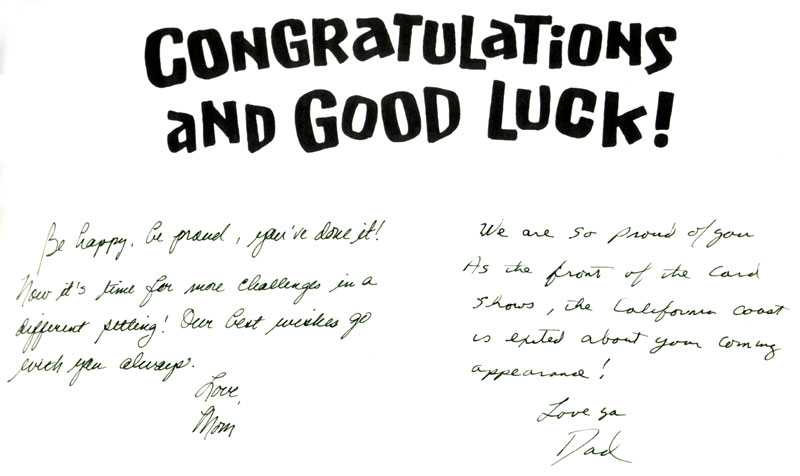 CONGRATULATIONS
AND GOOD LUCK!
Be happy, be proud, you've done it!
Now it's time for more challenges in a
different setting! Our best wishes go
with you always.
Love,
Mom
We are so proud of you
As the front of the Card
shows, the California coast
is exited about your coming
appearance!
Love ya
Dad